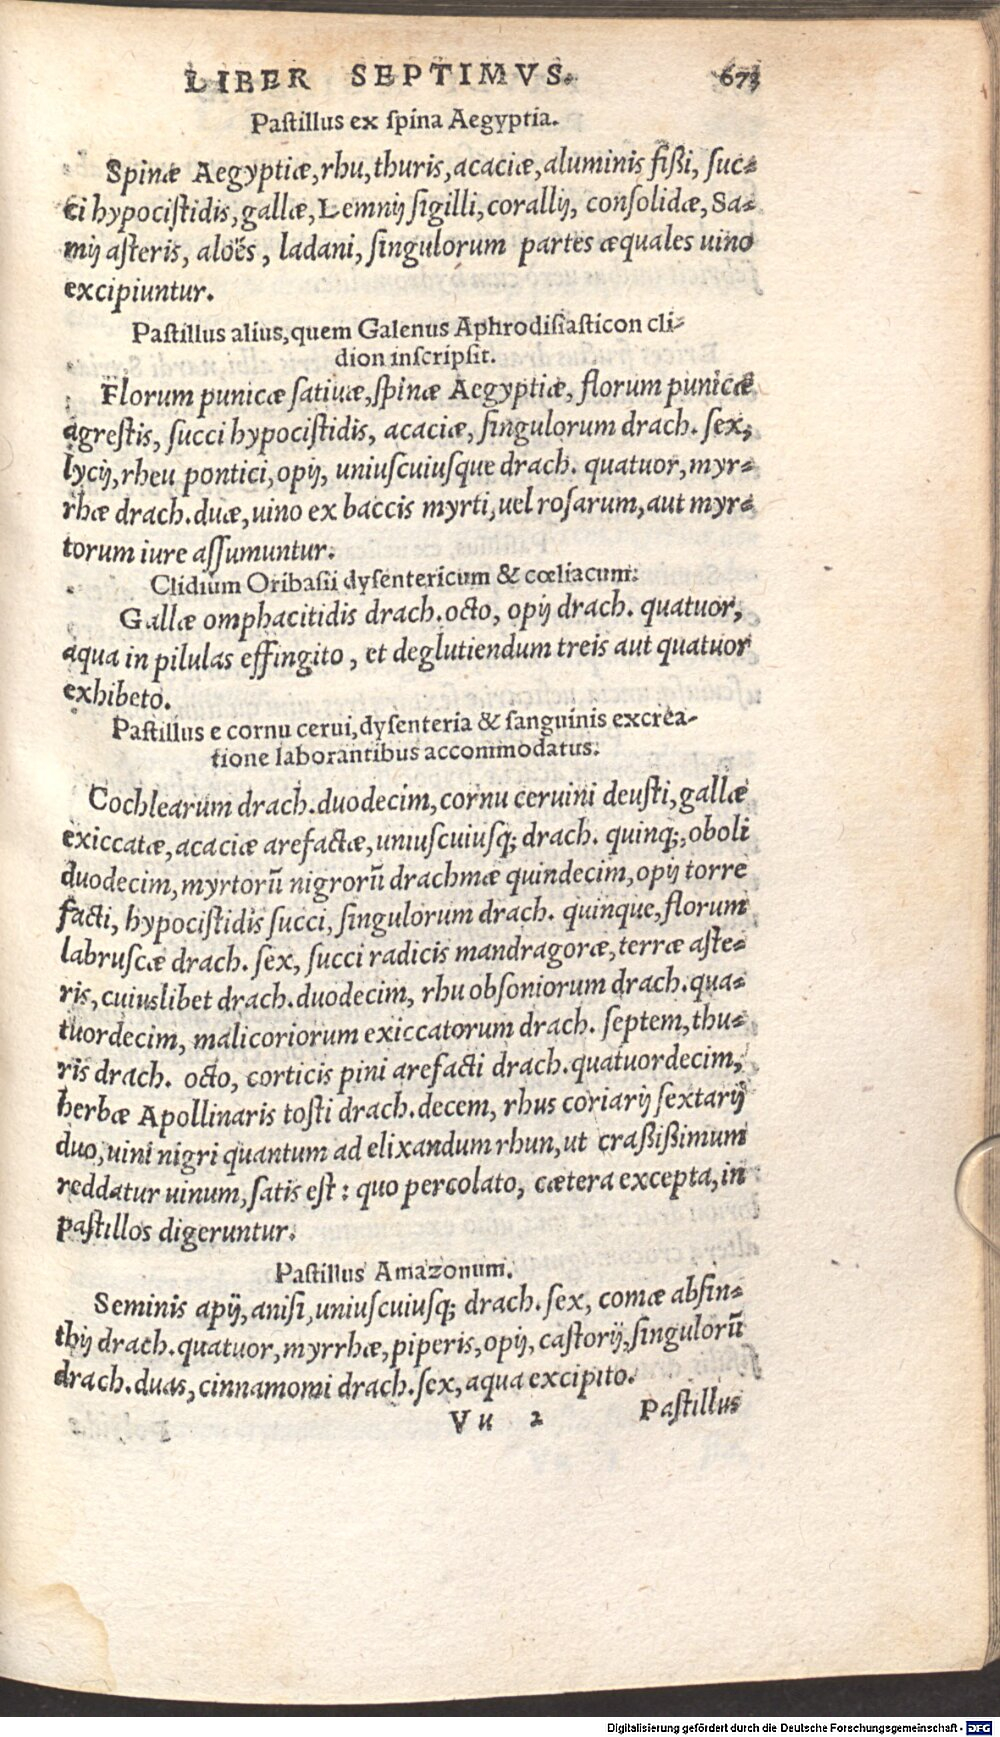 LIBER SEPTIMVS. 673
Paſtillus ex ſpina Aegyptia.
Spinæ Aegyptiæ, rhu, thuris, acaciæ, aluminis fißi, ſuc-
ci hypociſtidis, gallæ, Lemnij ſigilli, corallij, conſolidæ, Sa-
mij aſteris, aloës, ladani, ſingulorum partes æquales uino
excipiuntur.
Paſtillus alius, quem Galenus Aphrodiſiaſticon cli-
dion inſcripſit.
Florum punicæ ſatiuæ, ſpinæ Aegyptiæ, florum punicæ
agreſtis, ſucci hypociſtidis, acaciæ, ſingulorum drach. ſex,
lycij, rheu pontici, opij, uniuſcuiuſque drach. quatuor, myr-
rhæ drach. duæ, uino ex baccis myrti, uel roſarum, aut myr-
torum iure aſſumuntur.
Clidium Oribaſii dyſentericum & cœliacum.
Gallæ omphacitidis drach. octo, opij drach. quatuor,
aqua in pilulas effingito, et deglutiendum treis aut quatuor
exhibeto.
Paſtillus e cornu cerui, dyſenteria & ſanguinis excrea-
tione laborantibus accommodatus.
Cochlearum drach. duodecim, cornu ceruini deuſti, gallæ
exiccatæ, acaciæ arefactæ, uniuſcuiuſq; drach. quinq;, oboli
duodecim, myrtorũ nigrorũ drachmæ quindecim, opij torre
facti, hypociſtidis ſucci, ſingulorum drach. quinque, florum
labruſcæ drach. ſex, ſucci radicis mandragoræ, terræ aſte-
ris, cuiuslibet drach. duodecim, rhu obſoniorum drach. qua-
tuordecim, malicoriorum exiccatorum drach. ſeptem, thu-
ris drach. octo, corticis pini arefacti drach. quatuordecim,
herbæ Apollinaris toſti drach. decem, rhus coriarij ſextarij
duo, uini nigri quantum ad elixandum rhun, ut craßißimum
reddatur uinum, ſatis eſt: quo percolato, cætera excepta, in
paſtillos digeruntur.
Paſtillus Amazonum.
Seminis apij, aniſi, uniuſcuiuſq; drach. ſex, comæ abſin-
thij drach. quatuor, myrrhæ, piperis, opij, caſtorij, ſingulorũ
drach. duas, cinnamomi drach. ſex, aqua excipito.
Vu 2 Paſtillus
Digitalisierung gefördert durch die Deutsche Forschungsgemeinschaft - DFG